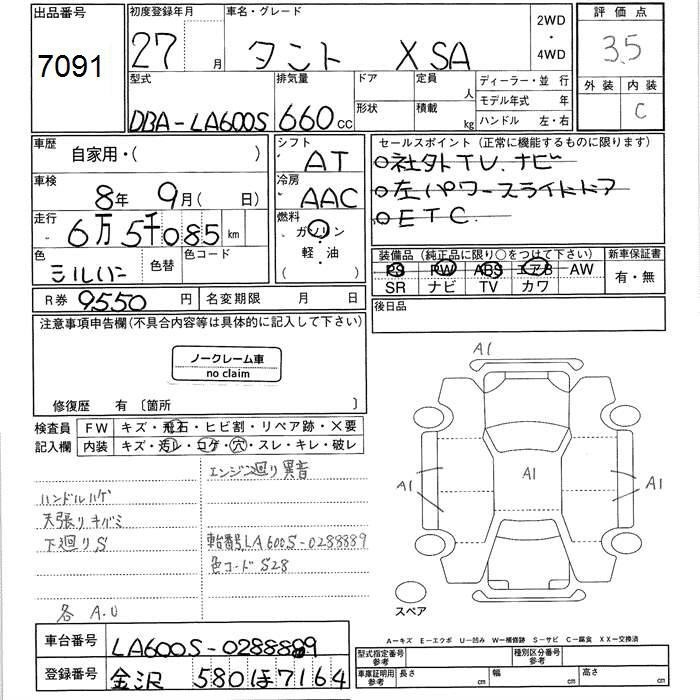 出品番号
7091
初度登録年月
27 月
車名・グレード
タント X SA
2WD
・
4WD
評価点
3.5
外装 内装
C
型式
DBA-LA600S
排気量
660 CC
ドア
形状
定員 人
積載 kg
ディーラー・並行
モデル年式 年
ハンドル 左・右
車歴
自家用・( )
シフト
AT
セールスポイント (正常に機能するものに限ります)
○社外TV.ナビ
○左パワースライドドア
○ETC
車検
8年 9月( 日)
冷房
AAC
走行
6万5千085 km
燃料
ガソリン
・
軽・油
色
シルバー
色替
色コード
装備品 (純正品に限り○をつけて下さい)
PS PW ABS エアB AW
SR ナビ TV カワ
新車保証書
有・無
R券 9550 円
名変期限 月 日
後日品
注意事項申告欄(不具合内容等は具体的に記入して下さい)
ノークレーム車
no claim
修復歴 有 〔箇所 〕
検査員
記入欄
FW キズ・飛石・ヒビ割・リペア跡・X要
内装 キズ・汚レ・コゲ・穴・スレ・キレ・破レ
エンジン廻り異音
ハンドルハゲ
天張りキバミ
下廻りS
車台番号LA600S-0288889
色コードS28
各 A.U
A1
A1
A1
A1
スペア
A―キズ E―エクボ U―凹み W―補修跡 S―サビ C―腐食 XX―交換済
車台番号 LA600S-0288889
登録番号 金沢 580 ほ 7164
型式指定番号
参考
種別区分番号
参考
車庫証明用
参考
長さ cm
幅 cm
高さ cm